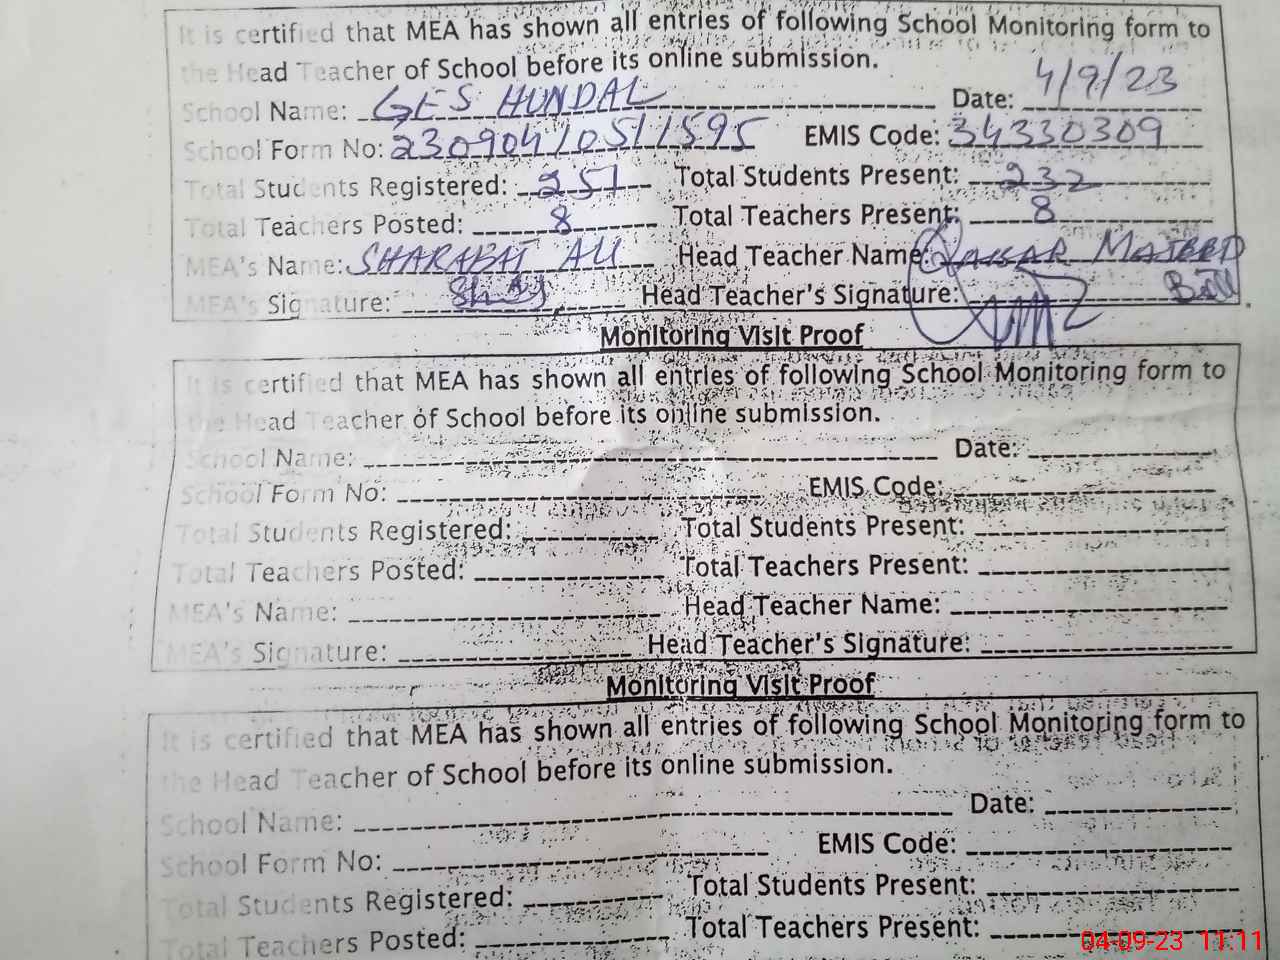 It is certified that MEA has shown all entries of following School Monitoring form to
the Head Teacher of School before its online submission.
School Name: GES HUNDAL Date: 4/9/23
School Form No: 230904/0511595 EMIS Code: 34330309
Total Students Registered: 251 Total Students Present: 232
Total Teachers Posted: 8 Total Teachers Present: 8
MEA's Name: SHARAFAT ALI Head Teacher Name: QAISAR MAJEED
MEA's Signature: Head Teacher's Signature:
Monitoring Visit Proof
It is certified that MEA has shown all entries of following School Monitoring form to
the Head Teacher of School before its online submission.
School Name: Date:
School Form No: EMIS Code:
Total Students Registered: Total Students Present:
Total Teachers Posted: Total Teachers Present:
MEA's Name: Head Teacher Name:
MEA's Signature: Head Teacher's Signature:
Monitoring Visit Proof
It is certified that MEA has shown all entries of following School Monitoring form to
the Head Teacher of School before its online submission.
School Name: Date:
School Form No: EMIS Code:
Total Students Registered: Total Students Present:
Total Teachers Posted: Total Teachers Present:
04-09-23 11:11